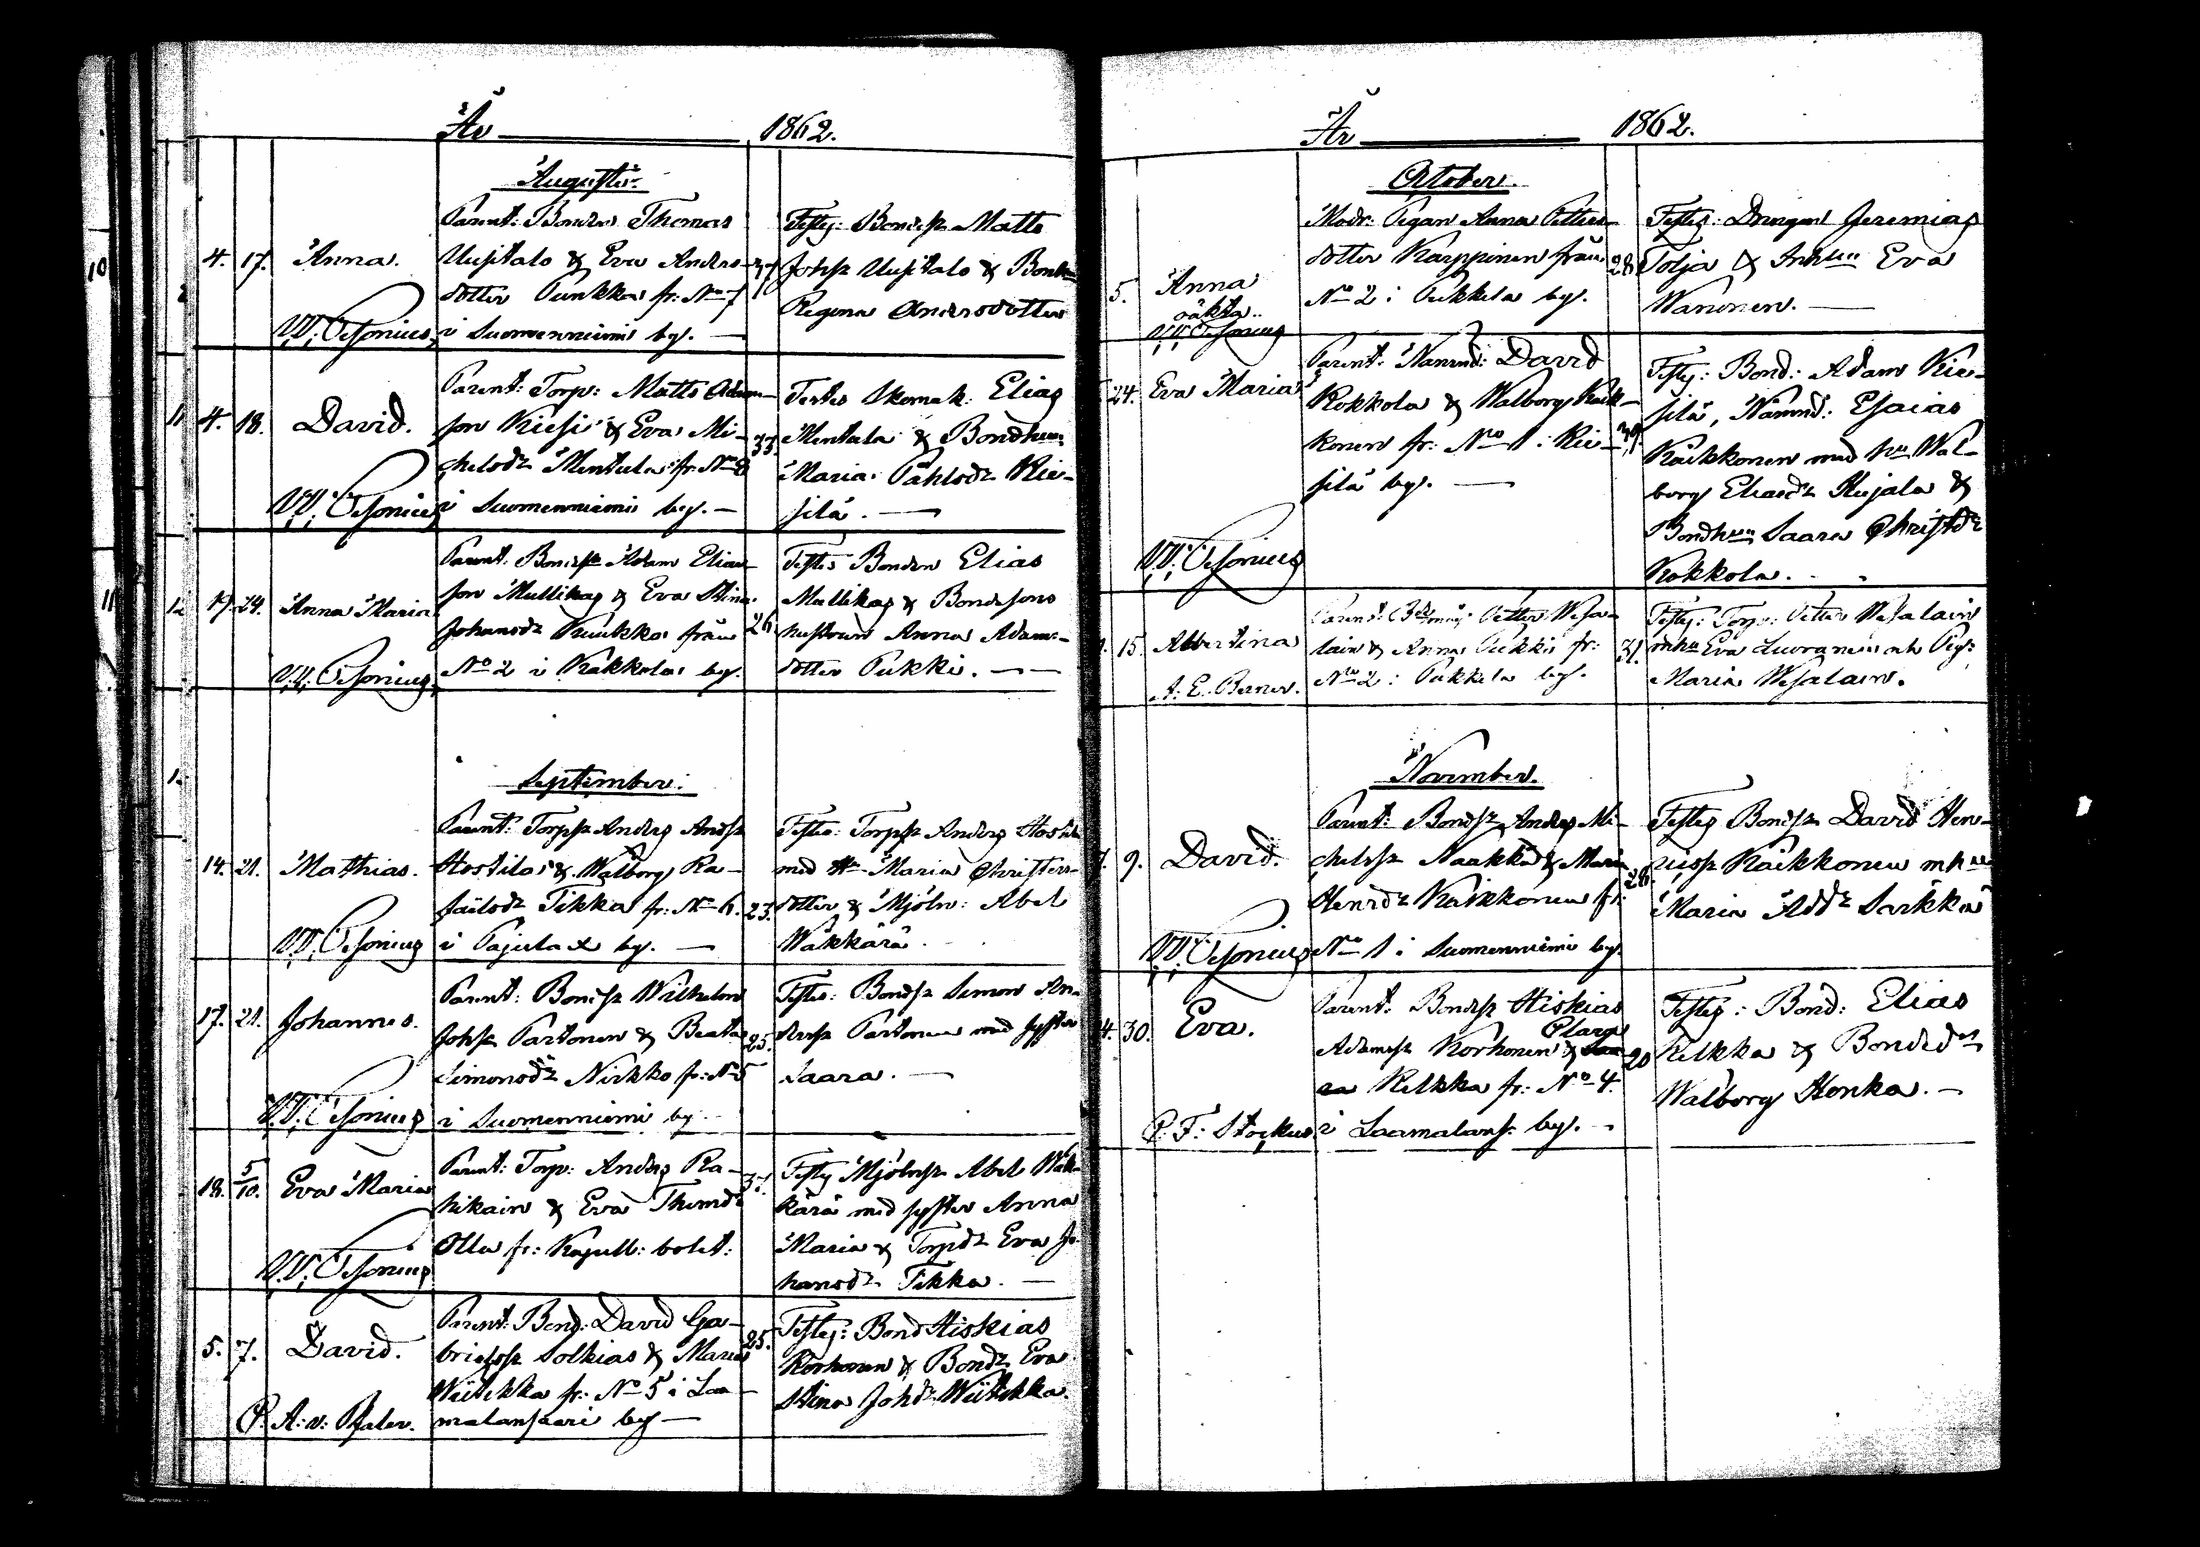 År 1862.
Augusti.
4. 17. Anna.
V. V. Cesonius
Parent: Bonden Thomas
Uusitalo & Eva Anders-
dotter Punkka fr: No 7
i Suomenniemi by. —
37
Testes: Bondes. Matts
Johss. Uusitalo & Bond
Regina Andersdotter
4. 18. David.
Parent: Torp: Matts Adam-
son Kiesi & Eva Mi-
chelsdr Mentula fr: No 8
i Suomenniemi by. —
33.
Testes Skomak: Elias
Mentula & Bondhu
Maria Påhlsdr Kie-
silä. —
19. 24. Anna Maria
Parent: Bondes. Adam Elias-
son Mullikas & Eva Stina
Johansdr Kuukka från
No 2 i Kakkola by.
26.
Testes Bonden Elias
Mullikas & Bondesons
hustrun Anna Adams-
dotter Pukki. —
September.
14. 21. Mathias.
Parent: Torps. Anders Ands.
Hostila & Walborg Ra-
failsdr Tikka fr: No 6.
i Pajula by. —
23.
Testes: Torps. Anders Hostila
med Hu Maria Christers-
dotter & Mjöln: Abel
Wäkkärä.
17. 21. Johannes.
Parent: Bondes. Wilhelm
Johs. Partonen & Beata
Simonsdr Nirkko fr: No 5
i Suomenniemi by.
25.
Testes: Bonds. Simon An-
derss. Partonen med syster
Saara. —
18. 5/10. Eva Maria
Parent: Torp: Anders Ra-
hikain & Eva Thomdr
Olla fr: Kapell: bolet:
37.
Testes Mjölns. Abel Wäk-
kärä med syster Anna
Maria & Torpdr Eva Jo-
hansdr Tikka. —
5. 7. David.
Parent: Bond: David Ga-
brielss. Solkias & Maria
Wiitikka fr: No 5 i Laa-
malansaari by —
25.
Testes: Bond Hiskias
Korhonen & Bonddr Eva
Stina Johdr Wiitikka.
År 1862.
October.
5. Anna
oäkta.
Modr: Pigan Anna Petters-
dotter Karppinen från
No 2 i Pukkela by.
28.
Testes: Drängen Jeremias
Tolja & Eva
Wanonen. —
24. Eva Maria
Parent: Nämnd: David
Kokkola & Walborg Räik-
konen fr: No 1 i Kie-
silä by. —
39.
Testes: Bond: Adam Kie-
silä, Nämnd: Esaias
Räikkonen med hu Wal-
borg Eliasdr Kujala &
Bondhun Saara Christdr
Kokkola.
15. Albertina
A. E. Berner.
Petter Wesa-
lain & Anna Pukki fr:
No 2 i Pukkela by.
31.
Testes: Torp: Petter Wesalain
mhu Eva Luoranen och Pig:
Maria Wesalain.
November.
9. David.
Parent: Bonds. Anders Mi-
chelss. Naakka & Maria
Henrdr Räikkonen fr:
No 1 i Suomenniemi by.
28.
Testes Bonds. David Hen-
ricss. Räikkonen mhu
Maria Addr Särkkä
4. 30. Eva.
Parent: Bonds. Hiskias
Adamss. Korhonen & Clara
Kelkka fr: No 4.
i Laamalans. by. —
20
Testes: Bond: Elias
Kelkka & Bondedr
Walborg Honka. —